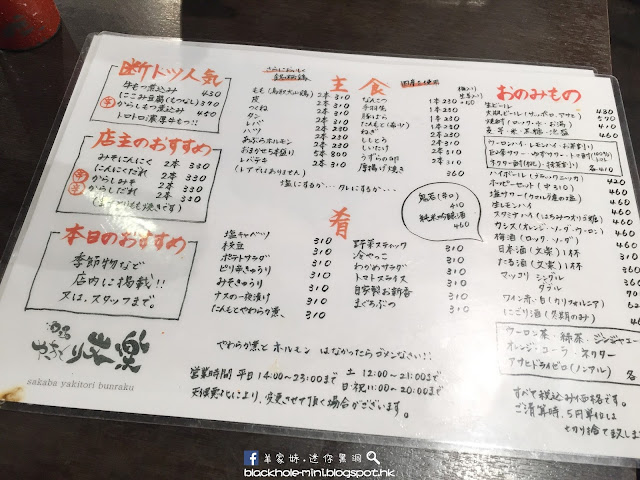 断トツ人気
牛もつ煮込み 430
(にこみ豆腐(もつなし)) 390
からしもつ煮込み 450
トロトロ濃厚牛もつ!!
店主のおすすめ
みそにんにく 2本 330
にんにくだれ 2本 330
からしみそ 2本 330
からしだれ 2本 330
本日のおすすめ
季節物など
店内に掲載!!
又は、スタッフまで。
酒場
やきとり
文楽
sakaba yakitori bunraku
主食
もも 2本 310
皮 2本 310
つくね 2本 310
タン 2本 310
レバ 2本 310
ハツ 2本 310
あぶらホルモン 2本 310
おまかせ5本盛り 5本 800
レバテキ 2本 310
塩にするか… タレにするか…
なんこつ 1本 230
手羽先 1本 230
豚ばら
ねぎ
ししとう
しいたけ
うずらの卵
唐揚げ焼き 360
鬼若(辛口)
410
純米吟醸酒
460
肴
塩キャベツ 310
枝豆 310
ポテトサラダ 310
ピリ辛きゅうり 310
みそきゅうり 310
ナスの一夜漬け 310
たんもとやわらか煮、 310
野菜スティック 310
冷やっこ 310
わかめサラダ 310
トマトスライス 310
自家製お新香 310
まぐろぶつ 310
やわらか煮とホルモン はなかったらゴメンなさい!!
営業時間 平日14:00~23:00まで 土 12:00~21:00まで
日・祝 11:00~20:00まで
天候悪化により、変更させて頂く場合がございます。
おのみもの
生ビール 430
大瓶ビール(サッポロ,アサヒ) 570
焼酎(ロック・水・お湯) 410
麦・芋・米・黒糖・泡盛 460
ウーロンハイ・レモンハイ・お茶割り
各410
ハイボール 420
ホッピーセット(中310) 460
生レモンハイ
カシス(オレンジ・ソーダ・ウーロン)
梅酒(ロック・ソーダ)
日本酒(文楽)1杯
たる酒(文楽)1杯
マッコリ シングル
ダブル
ワイン赤・白(カリフォルニア)
にごり酒
ウーロン茶・緑茶・ジンジャエー
オレンジ・コーラ・ネクター
アサヒドライゼロ(ノンアル) 各
すべて税込み価格です。
ご清算時、5円単位は
切り捨て致します
羊家姊.迷你黑洞
blackhole-mini.blogspot.hk